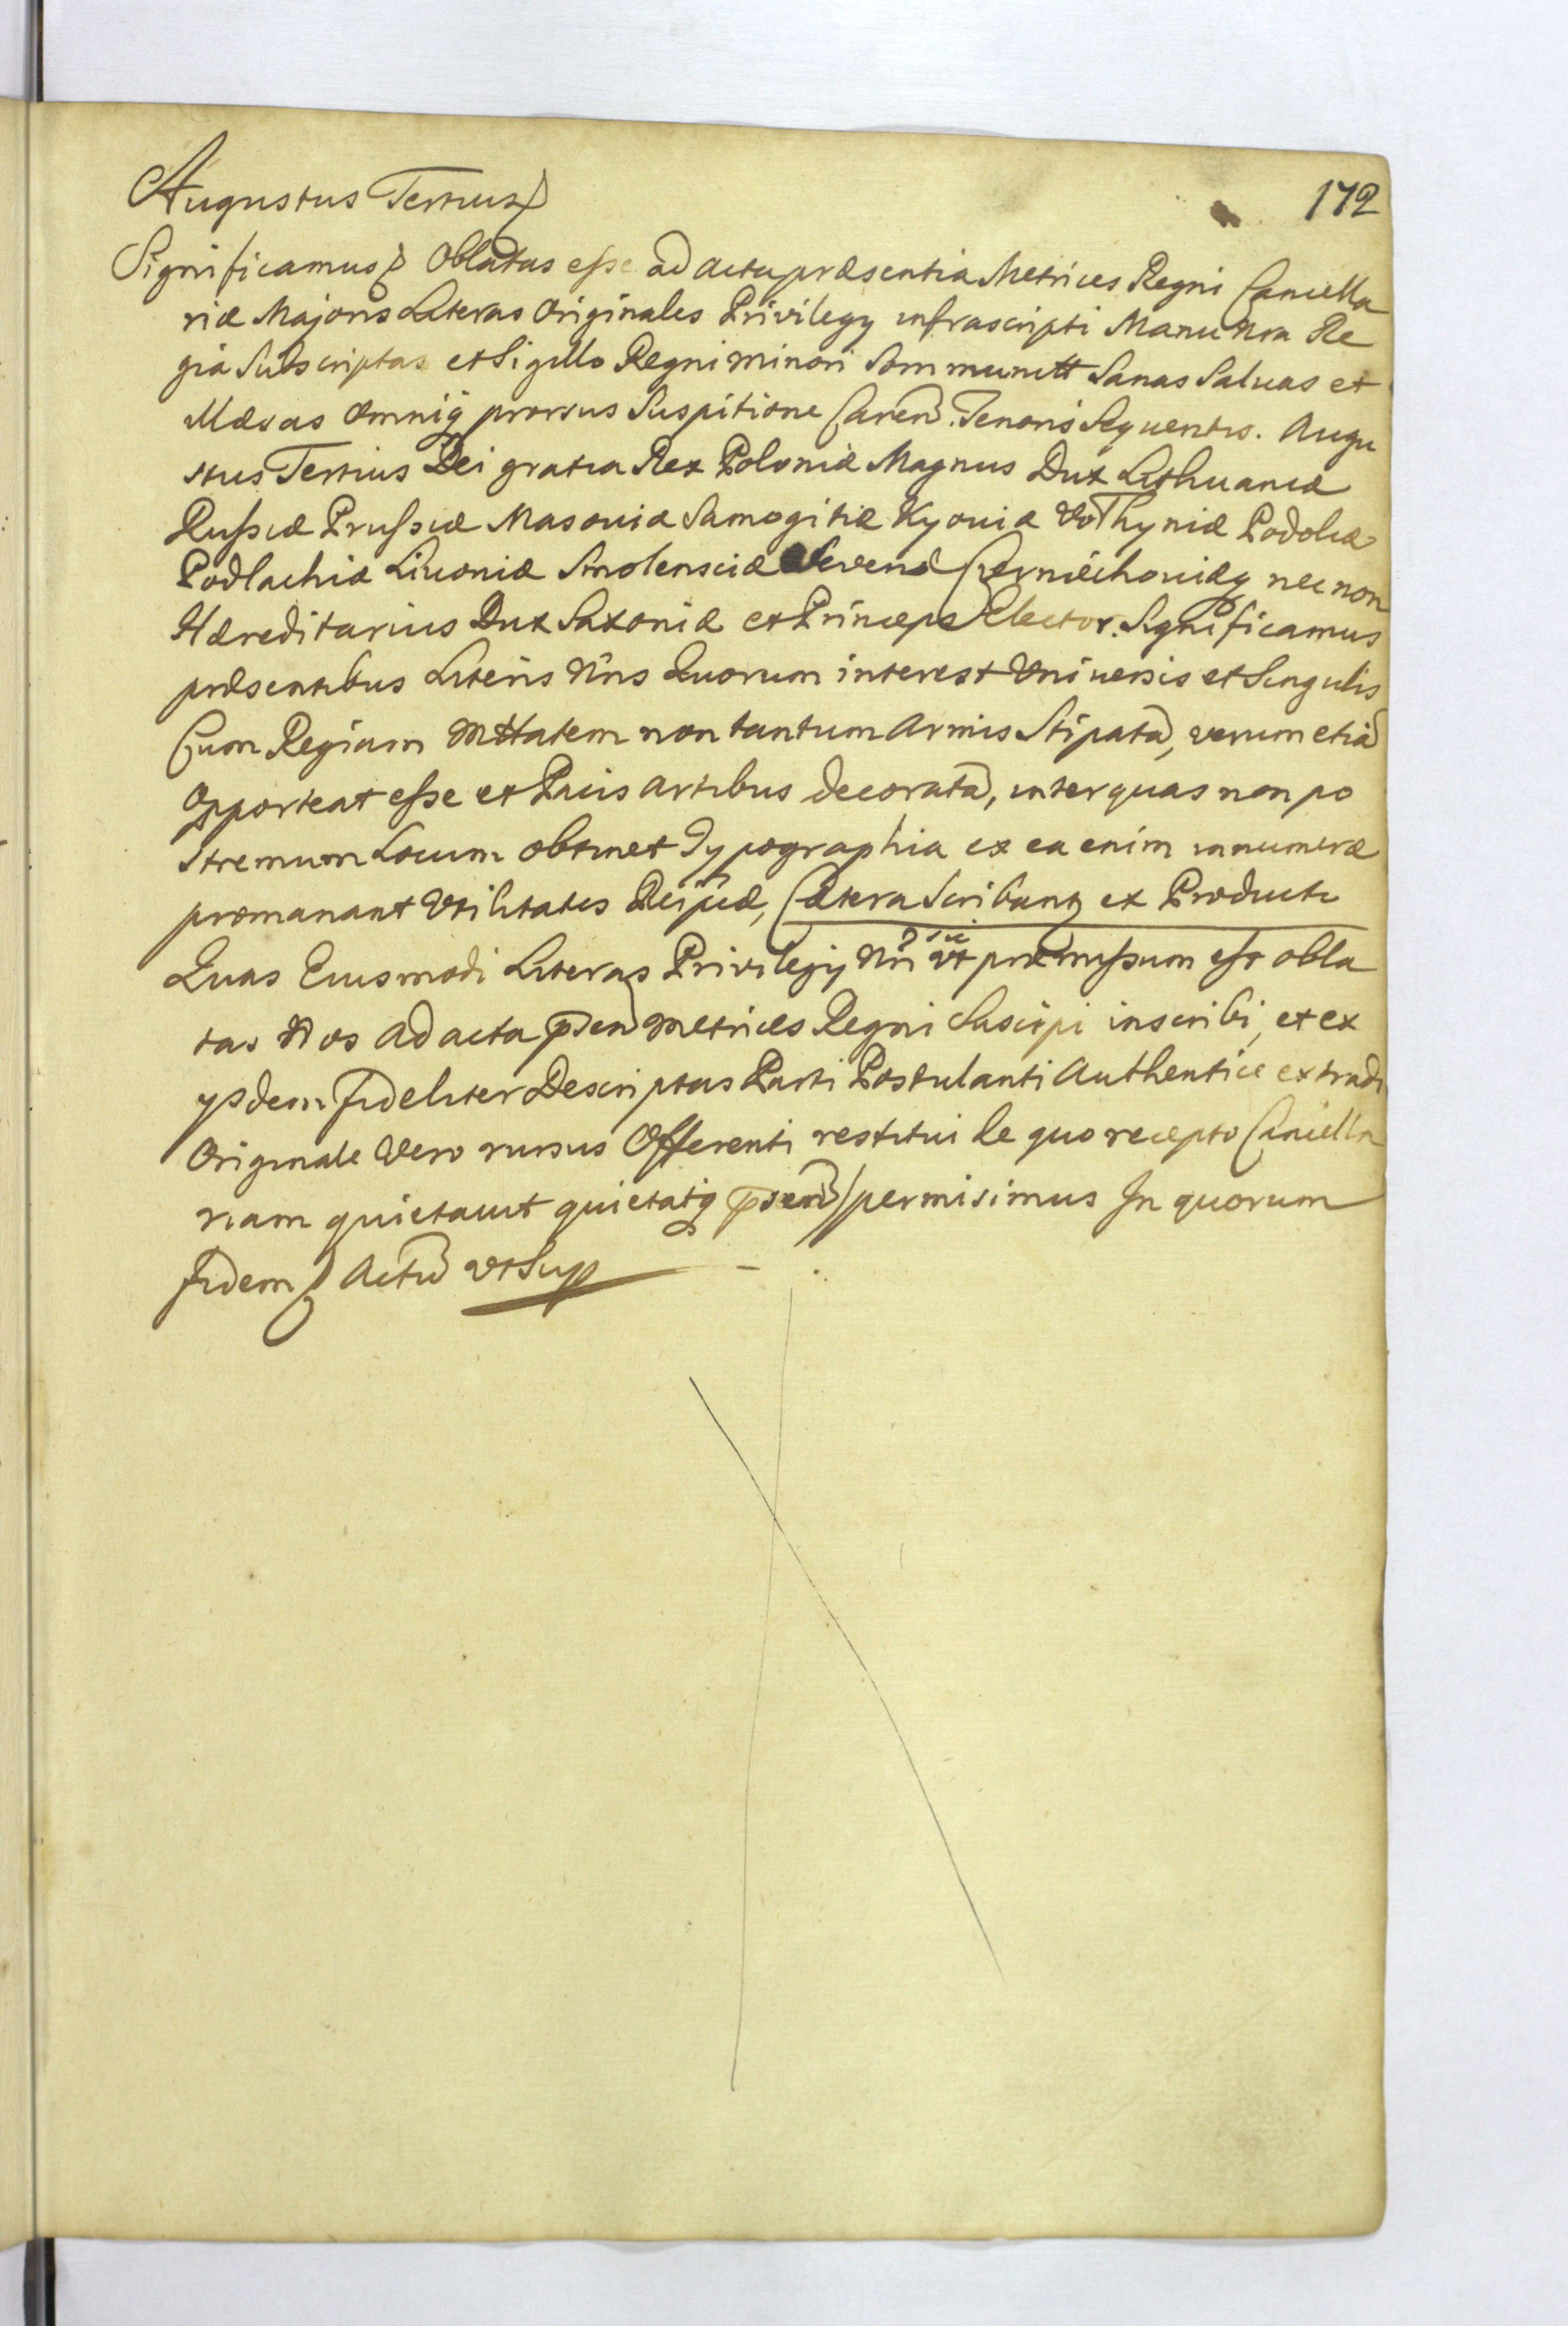 172
Augustus Tertius
Significamus Oblatas esse ad acta præsentia Metrices Regni Cancella
riæ Majoris Literas Originales Privilegy infrascripti Manu Nra Re
gia Subscriptas et Sigillo Regni minori Communitt Sanas Saluas et
Illæsas Omniq prorsus Suspitione Caren. Tenoris Sequentis. Augu
stus Tertius Dei gratia Rex Poloniæ Magnus Dux Lithuaniæ
Russiæ Prussiæ Masouiæ Samogitiæ Kyouiæ Volhyniæ Podoliæ
Podlachiæ Liuoniæ Smolensciæ Severiæ Czerniechouiæq nec non
Hæreditarius Dux Saxoniæ et Princeps Elector. Significamus
præsentibus Literis Nris Quorum interest Vniuersis et Singulis
Cum Regiam Mttatem non tantum Armis Stipatā, verum etiā
Opporteat esse et Pacis Artibus decoratā, inter quas non po
stremum Locum obtinet Typographia ex ea enim innumeræ
promanant Vtilitates Reipcæ, Cætera Scribantz ex Producto
sic
Quas Eiusmodi Literas Privilegij Nri vt præmissum est obla
tas Nos ad acta psen Metrices Regni Suscipi inscribi, et ex
ysdem fideliter Descriptas Parti Postulanti Authentice extradi
Originale Vero rursus Offerenti restitui de quo recepto Cancella
riam quietauit quietatq psen permisimus In quorum
fidem Actū vt Sup